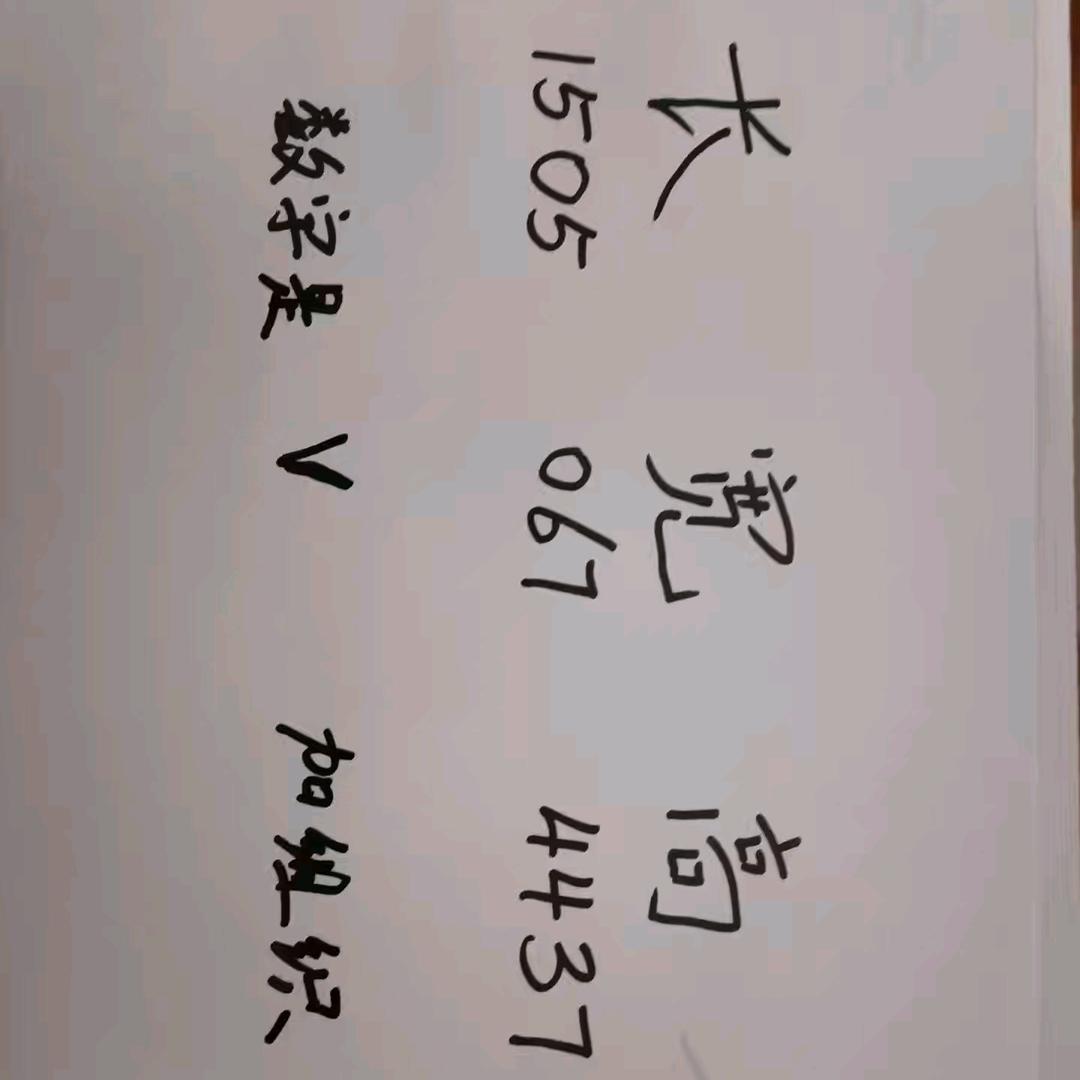 长 宽 高
1505 067 4437
数字是 V 加组织